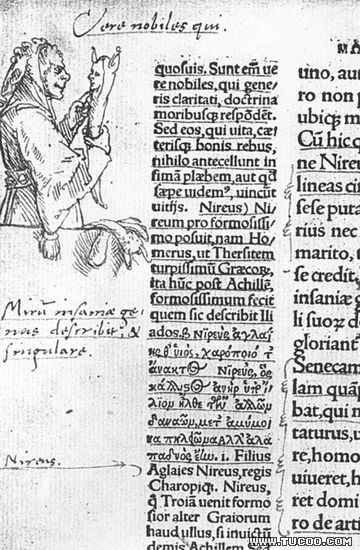 Vere nobiles qui.
quosuis. Sunt em̃ ue
re nobiles, qui gene
ris claritati, doctrina
moribusq; respõdẽt.
Sed eos, qui uita, cæ
terisq; bonis rebus,
nihilo antecellunt in
fimã plæbem, aut qđ
sæpe uidem⁹, uincũt
uitijs. Nireus) Ni
reum pro formosissi
mo posuit, nam Ho
merus, ut Thersitem
turpissimũ Græcoꝝ,
ita hũc post Achillẽ,
formosissimum fecit
quem sic describit Ili
ados.β Νιρεὺς ἀγλαΐ
ης θ' υἱος, χαροποιό τ'
ἄνακτος Νιρεὺς, ὃς
κάλλιστος ἀνὴρ ὑπὸ ἴ
λιον ἦλθε τῶν ἄλλων
δαναῶν, μετ' ἀμύμο
να πηλείωνα ἀλλ' ἀλα
παδνὸς ἔην. i. Filius
Aglaies Nireus, regis
Charopiq;. Nireus,
q̃ Troiã uenit formo
sior alter Graiorum
haud ullus, si inuictũ
demis Achillem. Se
Mirũ insaniæ ge-
nus describit, &
singulare.
Nireus.
MA
uno, aut
ro non p
ubiq; m
Cũ hic q
ne Nireu
lineas cir
sese puta
rius nec
marito, t
se credit,
insaniæ g
li suoꝝ d
gloriant
Senecam
lam quãp
bat, qui n
taturus, u
re, homo
uiueret, h
ret domi
ro de arti
WWW.TUCOO.COM